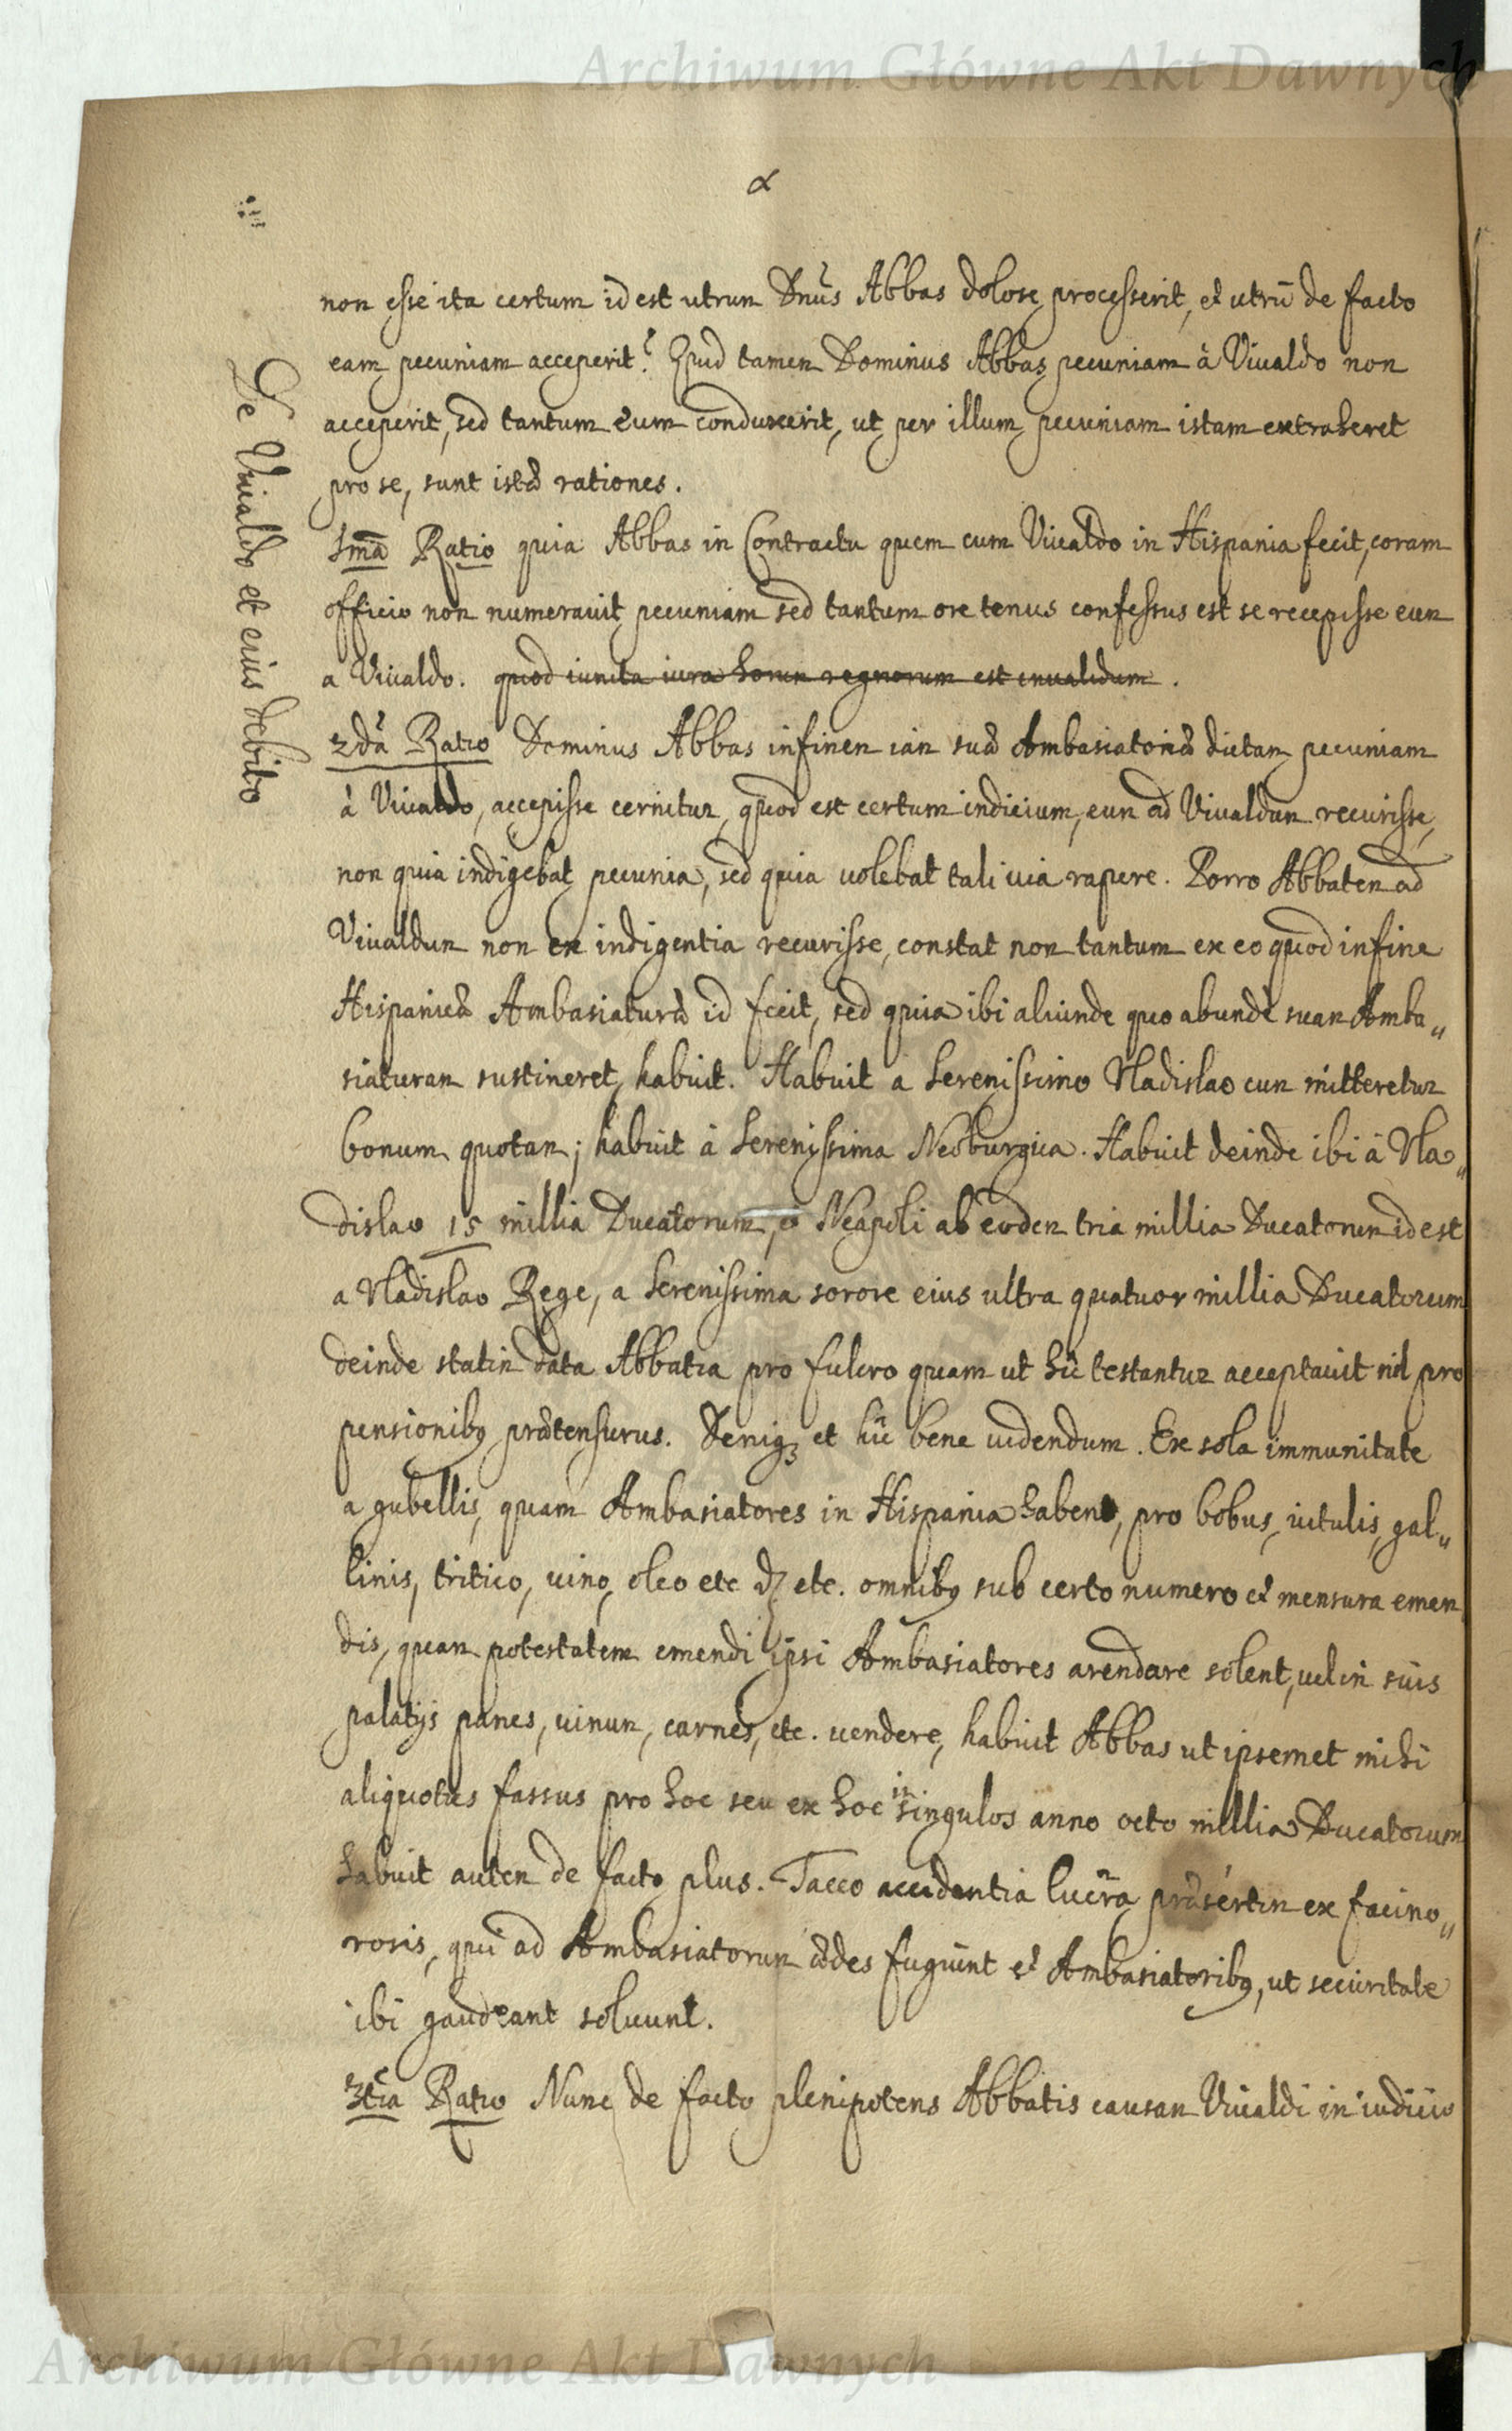 Archiwum Główne Akt Dawnych
α
non esse ita certum id est utrum Dnus Abbas dolose processerit, et utrũ de facto
eam pecuniam acceperit? Quod tamen Dominus Abbas pecuniam à Vivaldo non
acceperit, sed tantum eum conduxerit, ut per illum pecuniam istam extraheret
pro se, sunt istæ rationes.
1mã Ratio quia Abbas in Contractu quem cum Vivaldo in Hispania fecit, coram
officio non numeravit pecuniam sed tantum ore tenus confessus est se recepisse eum
a Vivaldo. quod iuxta iura horum regnorum est invalidum.
2dà Ratio Dominus Abbas in finem iam suæ Ambasiatoriæ dictam pecuniam
à Vivaldo, accepisse cernitur, quod est certum indicium, eum ad Vivaldum recurisse,
non quia indigebat pecunia, sed quia volebat tali via rapere. Porro Abbatem ad
Vivaldum non ex indigentia recurisse, constat non tantum ex eo quod in fine
Hispanicæ Ambasiaturæ id fecit, sed quia ibi aliunde quo abunde suam Amba„
siaturam sustineret, habuit. Habuit a Serenissimo Vladislao cum mitteretur
bonum quotam; habuit à Serenissima Neoburgica. Habuit deinde ibi à Vla„
dislao 15 millia Ducatorum, et Neapoli ab eodem tria millia Ducatorum id est
a Vladislao Rege, a Serenissima sorore eius ultra quatuor millia Ducatorum
deinde statim data Abbatia pro fulcro quam ut hic testantur acceptavit nil pro
pensionibus prætensurus. Deniq; et hic bene videndum. Ex sola immunitate
a gubellis, quam Ambasiatores in Hispania habent, pro bobus, vitulis, gal„
linis, tritico, vino, oleo etc et etc. omnibus sub certo numero et mensura emen
dis, quam potestatem emendi ipsi Ambasiatores arendare solent, vel in suis
palatijs panes, vinum, carnes, etc. vendere, habuit Abbas ut ipsemet mihi
aliquoties fassus pro hoc seu ex hoc in singulos anno octo millia Ducatorum
habuit autem de facto plus. Taceo accidentia lucra præsertim ex facino„
rosis, qui ad Ambasiatorum ædes fugiunt et Ambasiatoribus, ut securitate
ibi gaudeant solvunt.
3tia Ratio Nunc de facto plenipotens Abbatis causam Vivaldi in iudicio
De Vivaldo et eius debito
Archiwum Główne Akt Dawnych